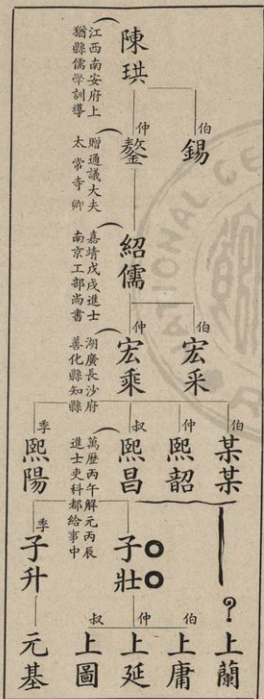 陳珙
江西南安府上
猶縣儒學訓導
伯
錫
仲
鏊
贈通議大夫
太常寺卿
紹儒
嘉靖戊戌進士
南京工部尚書
伯
宏采
仲
宏乘
湖廣長沙府
善化縣知縣
伯
某某
仲
熙韶
叔
熙昌
萬歷丙午解元丙辰
進士吏科都給事中
季
熙陽
子壯
季
子升
?
上蘭
伯
上庸
仲
上延
叔
上圖
元基